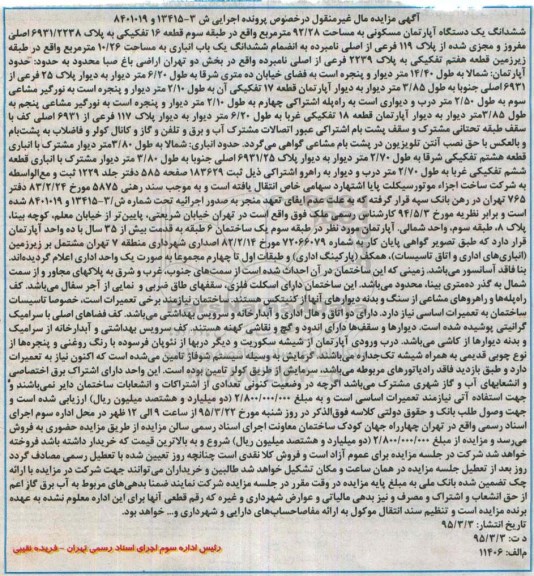 آگهی مزایده مال غیرمنقول درخصوص پرونده اجرایی ش ۳-۱۳۴۱۵ و ۸۴۰۱۰۱۹
ششدانگ یک دستگاه آپارتمان مسکونی به مساحت ۹۲/۲۸ مترمربع واقع در طبقه سوم قطعه ۱۶ تفکیکی به پلاک ۶۹۳۱/۲۲۳۸ اصلی
مفروز و مجزی شده از پلاک ۱۱۹ فرعی از اصلی نامبرده به انضمام ششدانگ یک باب انباری به مساحت ۱۰/۲۶ مترمربع واقع در طبقه
زیرزمین قطعه هفتم تفکیکی به پلاک ۲۲۳۹ فرعی از اصلی نامبرده واقع در بخش دو تهران اراضی باغ صبا محدود به حدود: حدود
آپارتمان: شمالا به طول ۱۴/۴۰ متر دیوار و پنجره است به فضای خیابان ده متری شرقا به طول ۶/۲۰ متر دیوار به دیوار پلاک ۲۵ فرعی از
۶۹۳۱ اصلی جنوبا به طول ۳/۸۵ متر دیوار به دیوار آپارتمان قطعه ۱۷ تفکیکی آن به طول ۲/۱۰ متر دیوار و پنجره است به نورگیر مشاعی
سوم به طول ۲/۵۰ متر درب و دیواری است به راه‌پله اشتراکی چهارم به طول ۲/۱۰ متر دیوار و پنجره است به نورگیر مشاعی پنجم به
طول ۳/۸۵ متر دیوار به دیوار آپارتمان قطعه ۱۸ تفکیکی غربا به طول ۶/۲۰ متر دیوار به دیوار پلاک ۱۱۷ فرعی از ۶۹۳۱ اصلی کف با
سقف طبقه تحتانی مشترک و سقف پشت بام اشتراکی عبور اتصالات مشترک آب و برق و تلفن و گاز و کانال کولر و فاضلاب به پشت‌بام
و بالعکس با حق نصب آنتن تلویزیون در پشت بام مشاعی گواهی می‌گردد. حدود انباری: شمالا به طول ۳/۸۰ متر دیوار مشترک با انباری
قطعه هشتم تفکیکی شرقا به طول ۲/۷۰ متر دیوار به دیوار پلاک ۶۹۳۱/۲۵ اصلی جنوبا به طول ۳/۸۰ متر دیوار مشترک با انباری قطعه
ششم تفکیکی غربا به طول ۲/۷۰ متر درب و دیوار به راهرو اشتراکی ذیل ثبت ۱۸۳۶۲۹ صفحه ۵۸۵ دفتر جلد ۱۲۲۹ ثبت و مع‌الواسطه
به شرکت ساخت اجزاء موتورسیکلت پایا اشتهارد سهامی خاص انتقال یافته است و به موجب سند رهنی ۵۸۷۵ مورخ ۸۳/۲/۲۴ دفتر
۷۶۵ تهران در رهن بانک سپه قرار گرفته که به علت عدم ایفای تعهد منجر به صدور اجرائیه تحت شماره ش/۳-۱۳۴۱۵ و ۸۴۰۱۰۱۹ شده
است و برابر نظریه مورخ ۹۴/۵/۳ کارشناس رسمی پلاک فوق واقع است در تهران خیابان شریعتی، پایین‌تر از خیابان معلم، کوچه بینا،
پلاک ۸، طبقه سوم، واحد شمالی. آپارتمان مورد نظر در طبقه سوم یک ساختمان ۶ طبقه به قدمت بیش از ۳۵ سال با ده واحد آپارتمان
قرار دارد که طبق تصویر گواهی پایان کار به شماره ۷۲۰۶۶۰۷۹ مورخ ۸۲/۲/۱۴ اصداری شهرداری منطقه ۷ تهران مشتمل بر زیرزمین
(انباری‌های اداری و اتاق تاسیسات)، همکف (پارکینگ اداری) و طبقات اول تا چهارم مجموعا به صورت یک واحد اداری اعلام گردیده‌اند.
بنا فاقد آسانسور می‌باشد. زمینی که این ساختمان در آن احداث شده است از سمت‌های جنوب، غرب و شرق به پلاکهای مجاور و از سمت
شمال به گذر ده‌متری بینا، محدود می‌باشد. این ساختمان دارای اسکلت فلزی، سقفهای طاق ضربی و نمایی از آجر سفال می‌باشد. کف
راه‌پله‌ها و راهروهای مشاعی از سنگ و بدنه دیوارهای آنها از کنیتکس هستند. ساختمان نیازمند برخی تعمیرات است، خصوصا تاسیسات
ساختمان به تعمیرات اساسی نیاز دارد. دارای دو اتاق و هال اداری و آبدارخانه و سرویس بهداشتی می‌باشد. کف فضاهای اصلی با سرامیک
گرانیتی پوشیده شده است. دیوارها و سقف‌ها دارای اندود و گچ و نقاشی کهنه هستند. کف سرویس بهداشتی و آبدارخانه از سرامیک
و بدنه دیوارها از کاشی می‌باشد. درب ورودی آپارتمان از شیشه سکوریت و دیگر دربها از نئوپان فرسوده با رنگ روغنی و پنجره‌ها از
نوع چوبی قدیمی به همراه شیشه تک‌جداره می‌باشند. گرمایش به وسیله سیستم شوفاژ تامین می‌شده است که اکنون نیاز به تعمیرات
دارد و طبق بازدید فاقد رادیاتورهای مربوطه می‌باشد. سرمایش از طریق کولر تامین بوده است. این واحد دارای اشتراک برق اختصاصی
و انشعابهای آب و گاز شهری مشترک می‌باشد اگرچه در وضعیت کنونی تعدادی از اشتراکات و انشعابات ساختمان دایر نمی‌باشند و
جهت استفاده آتی نیازمند تعمیرات اساسی است و به مبلغ ۲/۸۰۰/۰۰۰/۰۰۰ (دو میلیارد و هشتصد میلیون ریال) ارزیابی شده است و
جهت وصول طلب بانک و حقوق دولتی کلاسه فوق‌الذکر در روز شنبه مورخ ۹۵/۳/۲۲ از ساعت ۹ الی ۱۲ ظهر در محل اداره سوم اجرای
اسناد رسمی واقع در تهران چهارراه جهان کودک ساختمان معاونت اجرای اسناد رسمی سالن مزایده از طریق مزایده حضوری به فروش
می‌رسد و مزایده از مبلغ ۲/۸۰۰/۰۰۰/۰۰۰ (دو میلیارد و هشتصد میلیون ریال) شروع و به بالاترین قیمت که خریدار داشته باشد فروخته
خواهد شد شرکت در جلسه مزایده برای عموم آزاد است و فروش کلا نقدی است چنانچه روز تعیین شده با تعطیل رسمی مصادف گردد
روز بعد از تعطیل جلسه مزایده در همان ساعت و مکان تشکیل خواهد شد طالبین و خریداران می‌توانند جهت شرکت در مزایده با ارائه
چک تضمین شده بانک ملی به مبلغ پایه مزایده در وقت مقرر در جلسه مزایده شرکت نمایند ضمنا بدهی‌های مربوط به آب برق گاز اعم
از حق انشعاب و اشتراک و مصرف و نیز بدهی مالیاتی و عوارض شهرداری و غیره که رقم قطعی آنها برای این اداره معلوم نشده به عهده
برنده مزایده است و تنظیم سند انتقال موکول به ارائه مفاصاحساب‌های دارایی و شهرداری و... خواهد بود.
تاریخ انتشار: ۹۵/۳/۳
د ت: ۹۵/۳/۳
م‌الف: ۱۱۴۰۶
رئیس اداره سوم اجرای اسناد رسمی تهران - فریده نقیبی